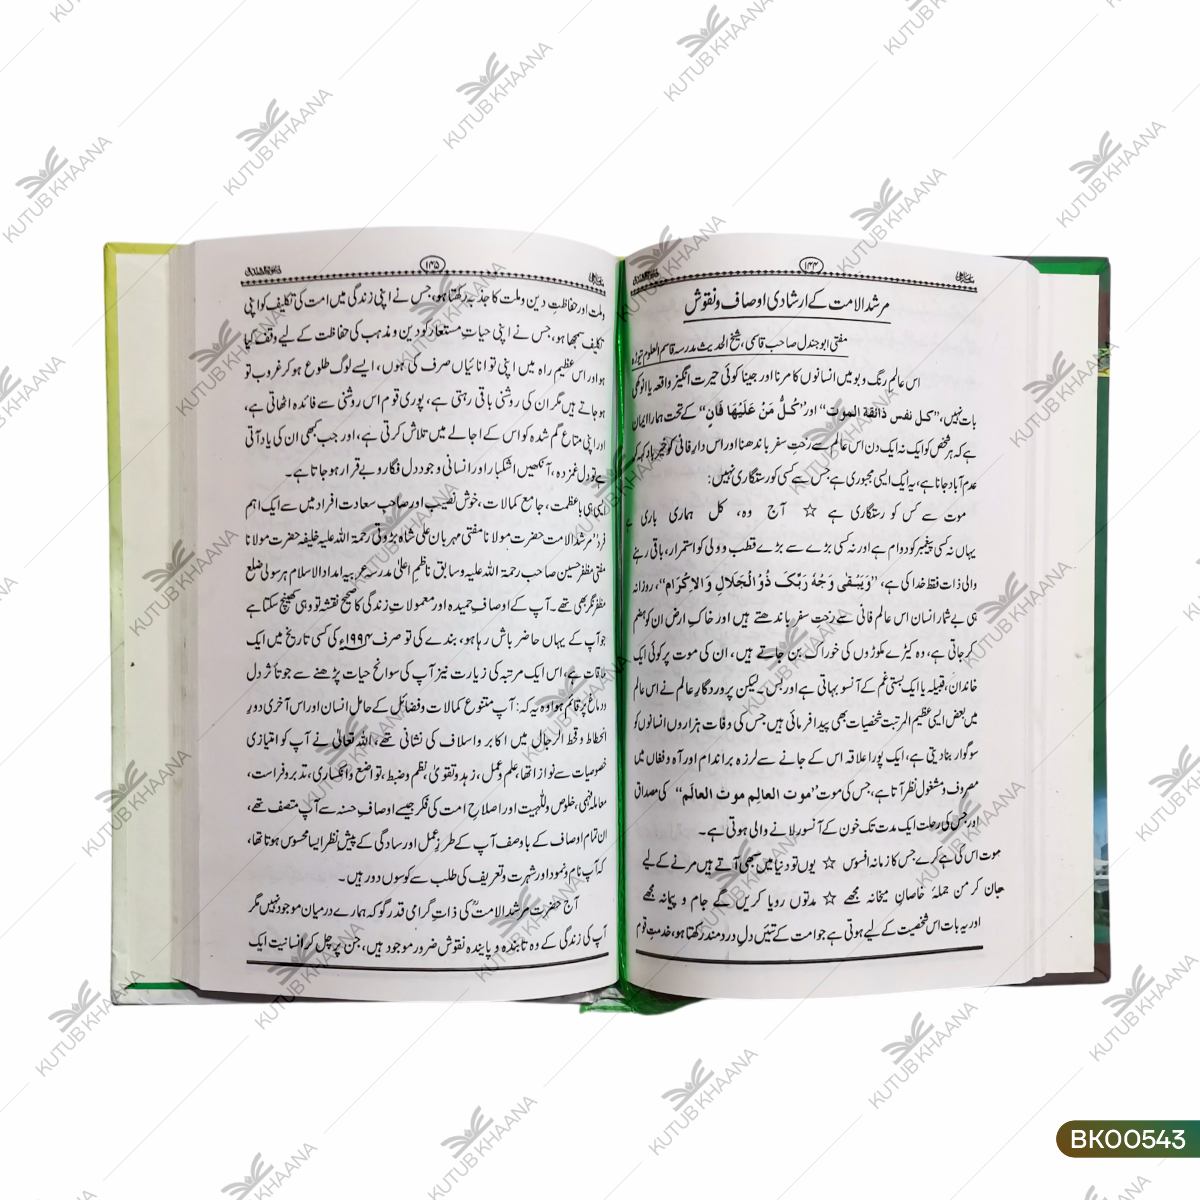 ۱۴۴
مرشد الامت کے ارشادی اوصاف ونقوش
مفتی ابوجندل صاحب قاسمی، شیخ الحدیث مدرسہ قاسم العلوم تیوڑہ
اس عالم رنگ وبو میں انسانوں کا مرنا اور جینا کوئی حیرت انگیز واقعہ یا انوکھی
بات نہیں، ”کل نفس ذائقة الموت“ اور ”کُلُّ مَنْ عَلَيْهَا فَانٍ“ کے تحت ہمارا ایمان
ہے کہ ہر شخص کو ایک نہ ایک دن اس عالم سے رختِ سفر باندھنا اور اس دارِ فانی کو خیر باد کہہ کر
عدم آباد جانا ہے، یہ ایک ایسی مجبوری ہے جس سے کسی کو رستگاری نہیں:
موت سے کس کو رستگاری ہے ☆ آج وہ، کل ہماری باری ہے
یہاں نہ کسی پیغمبر کو دوام ہے اور نہ کسی بڑے سے بڑے قطب و ولی کو استمرار، باقی رہنے
والی ذات فقط خدا کی ہے، ”وَيَبْقٰى وَجْهُ رَبِّكَ ذُو الْجَلَالِ وَ الْاِكْرَام“، روزانہ
ہی بے شمار انسان اس عالم فانی سے رختِ سفر باندھتے ہیں اور خاکِ ارض ان کو ہضم
کر جاتی ہے، وہ کیڑے مکوڑوں کی خوراک بن جاتے ہیں، ان کی موت پر کوئی ایک
خاندان، قبیلہ یا ایک بستی غم کے آنسو بہاتی ہے اور بس۔ لیکن پروردگارِ عالم نے اس عالم
میں بعض ایسی عظیم المرتبت شخصیات بھی پیدا فرمائی ہیں جس کی وفات ہزاروں انسانوں کو
سوگوار بنا دیتی ہے، ایک پورا علاقہ اس کے جانے سے لرزہ براندام اور آہ و فغاں میں
مصروف و مشغول نظر آتا ہے، جس کی موت ”موت العالِم موت العالَم“ کی مصداق
اور جس کی رحلت ایک مدت تک خون کے آنسو رلانے والی ہوتی ہے۔
موت اس کی ہے کرے جس کا زمانہ افسوس ☆ یوں تو دنیا میں سبھی آتے ہیں مرنے کے لیے
جان کر من جملۂ خاصانِ میخانہ مجھے ☆ مدتوں رویا کریں گے جام و پیمانہ مجھے
اور یہ بات اس شخصیت کے لیے ہوتی ہے جو امت کے تئیں دلِ دردمند رکھتا ہو، خدمتِ قوم
۱۴۵
وملت اور حفاظتِ دین وملت کا جذبہ رکھتا ہو، جس نے اپنی زندگی میں امت کی تکلیف کو اپنی
تکلیف سمجھا ہو، جس نے اپنی حیاتِ مستعار کو دین و مذہب کی حفاظت کے لیے وقف کیا
ہو اور اس عظیم راہ میں اپنی توانائیاں صرف کی ہوں، ایسے لوگ طلوع ہو کر غروب تو
ہو جاتے ہیں مگر ان کی روشنی باقی رہتی ہے، پوری قوم اس روشنی سے فائدہ اٹھاتی ہے،
اور اپنی متاعِ گم شدہ کو اس کے اجالے میں تلاش کرتی ہے، اور جب بھی ان کی یاد آتی
ہے تو دل غمزدہ، آنکھیں اشکبار اور انسانی وجود دل فگار و بے قرار ہو جاتا ہے۔
ایسی ہی باعظمت، جامع کمالات، خوش نصیب اور صاحبِ سعادت افراد میں سے ایک اہم
فرد ”مرشد الامت حضرت مولانا مفتی مہربان علی شاہ بڑوتی رحمۃ اللہ علیہ خلیفہ حضرت مولانا
مفتی مظفر حسین صاحب رحمۃ اللہ علیہ وسابق ناظمِ اعلیٰ مدرسہ عربیہ امداد الاسلام ہرسولی ضلع
مظفر نگر بھی تھے۔ آپ کے اوصافِ حمیدہ اور معمولاتِ زندگی کا صحیح نقشہ تو وہی کھینچ سکتا ہے
جو آپ کے یہاں حاضر باش رہا ہو، بندے کی تو صرف ۱۹۹۴ء کی کسی تاریخ میں ایک
ملاقات ہے، اس ایک مرتبہ کی زیارت نیز آپ کی سوانح حیات پڑھنے سے جو تأثر دل
ودماغ پر قائم ہوا وہ یہ کہ: آپ متنوع کمالات وفضائل کے حامل انسان اور اس آخری دورِ
انحطاط و قحط الرجال میں اکابر واسلاف کی نشانی تھے، اللہ تعالیٰ نے آپ کو امتیازی
خصوصیات سے نوازا تھا، علم وعمل، زہد وتقویٰ، نظم وضبط، تواضع وانکساری، تدبر وفراست،
معاملہ فہمی، خلوص وللّٰہیت اور اصلاحِ امت کی فکر جیسے اوصافِ حسنہ سے آپ متصف تھے،
ان تمام اوصاف کے باوصف آپ کے طرزِ عمل اور سادگی کے پیش نظر ایسا محسوس ہوتا تھا،
کہ آپ نام ونمود اور شہرت وتعریف کی طلب سے کوسوں دور ہیں۔
آج حضرت مرشد الامتؒ کی ذاتِ گرامی قدر گو کہ ہمارے درمیان موجود نہیں مگر
آپ کی زندگی کے وہ تابندہ و پایندہ نقوش ضرور موجود ہیں، جن پر چل کر انسانیت ایک
KUTUB KHAANA
BK00543